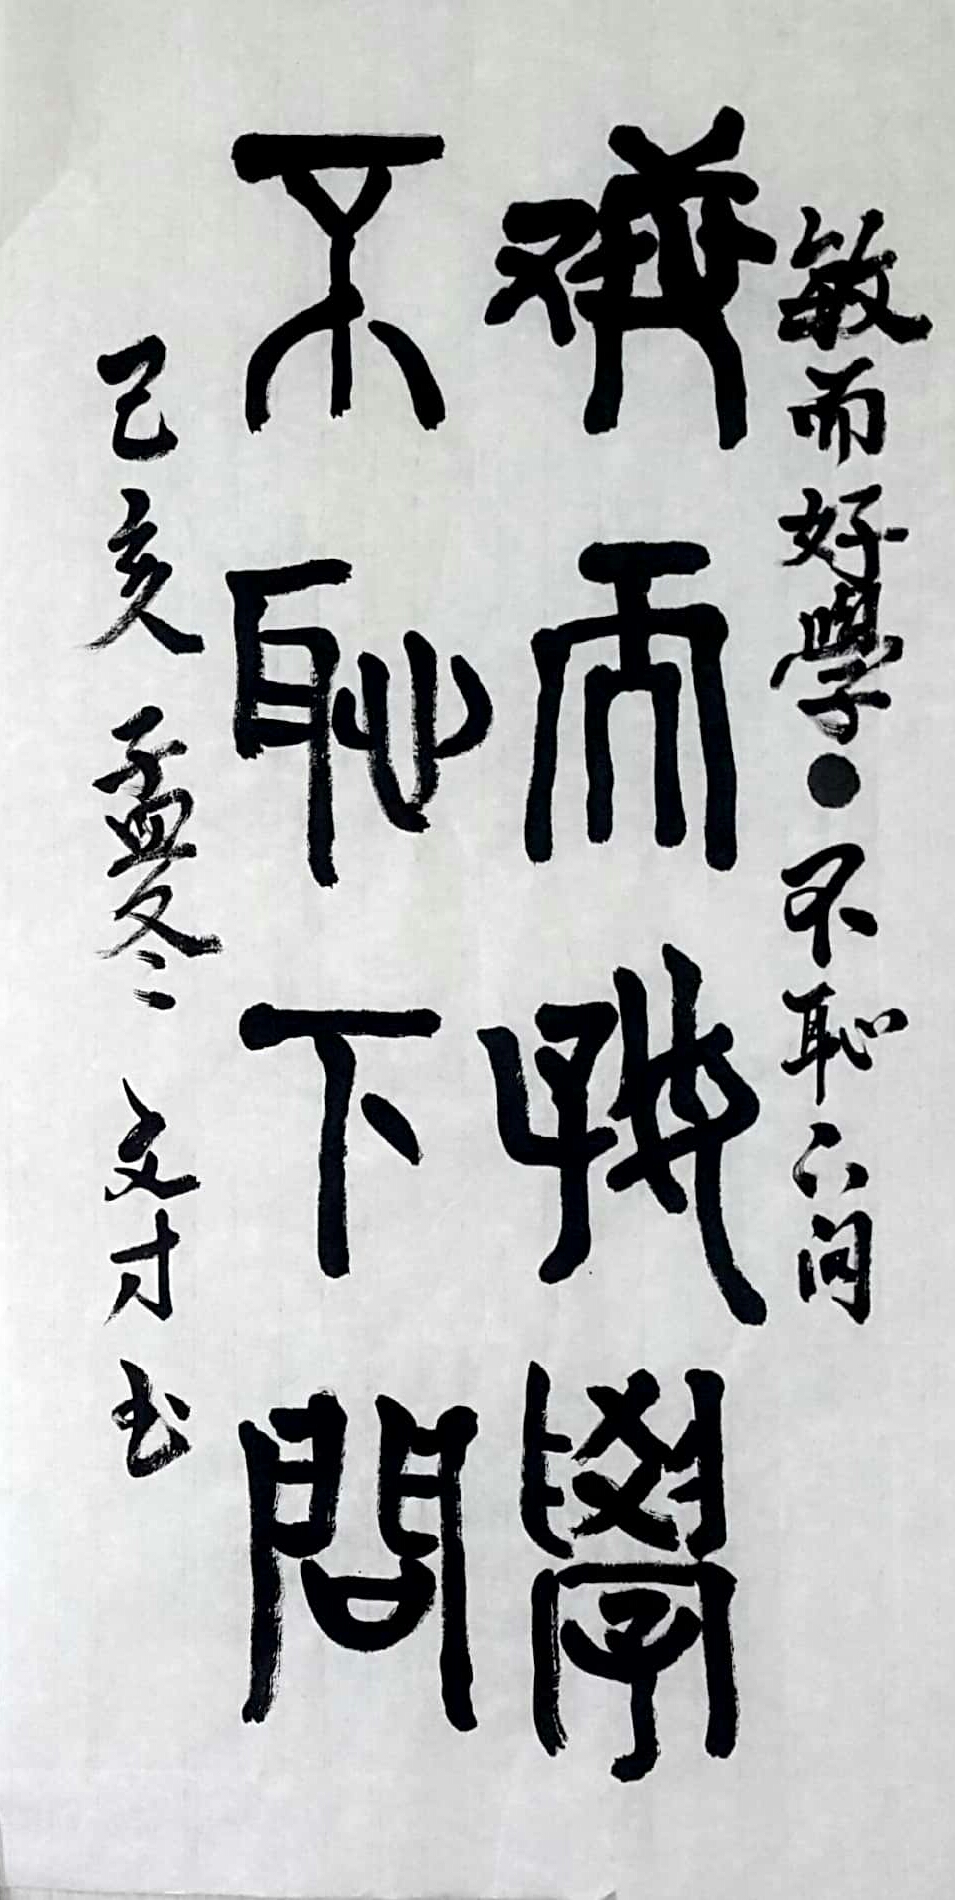 敏而好學●不恥下问
敏而好學
不恥下問
己亥孟冬 文才书